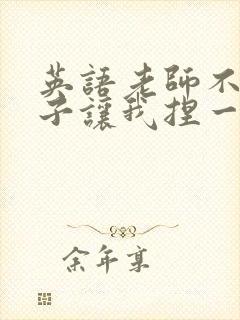 英語老師不
子讓我捏一
余年寡